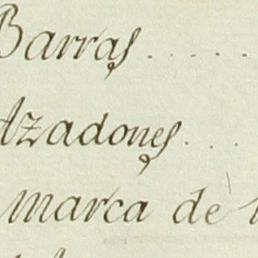 Barras.....
Azadones...
marca de